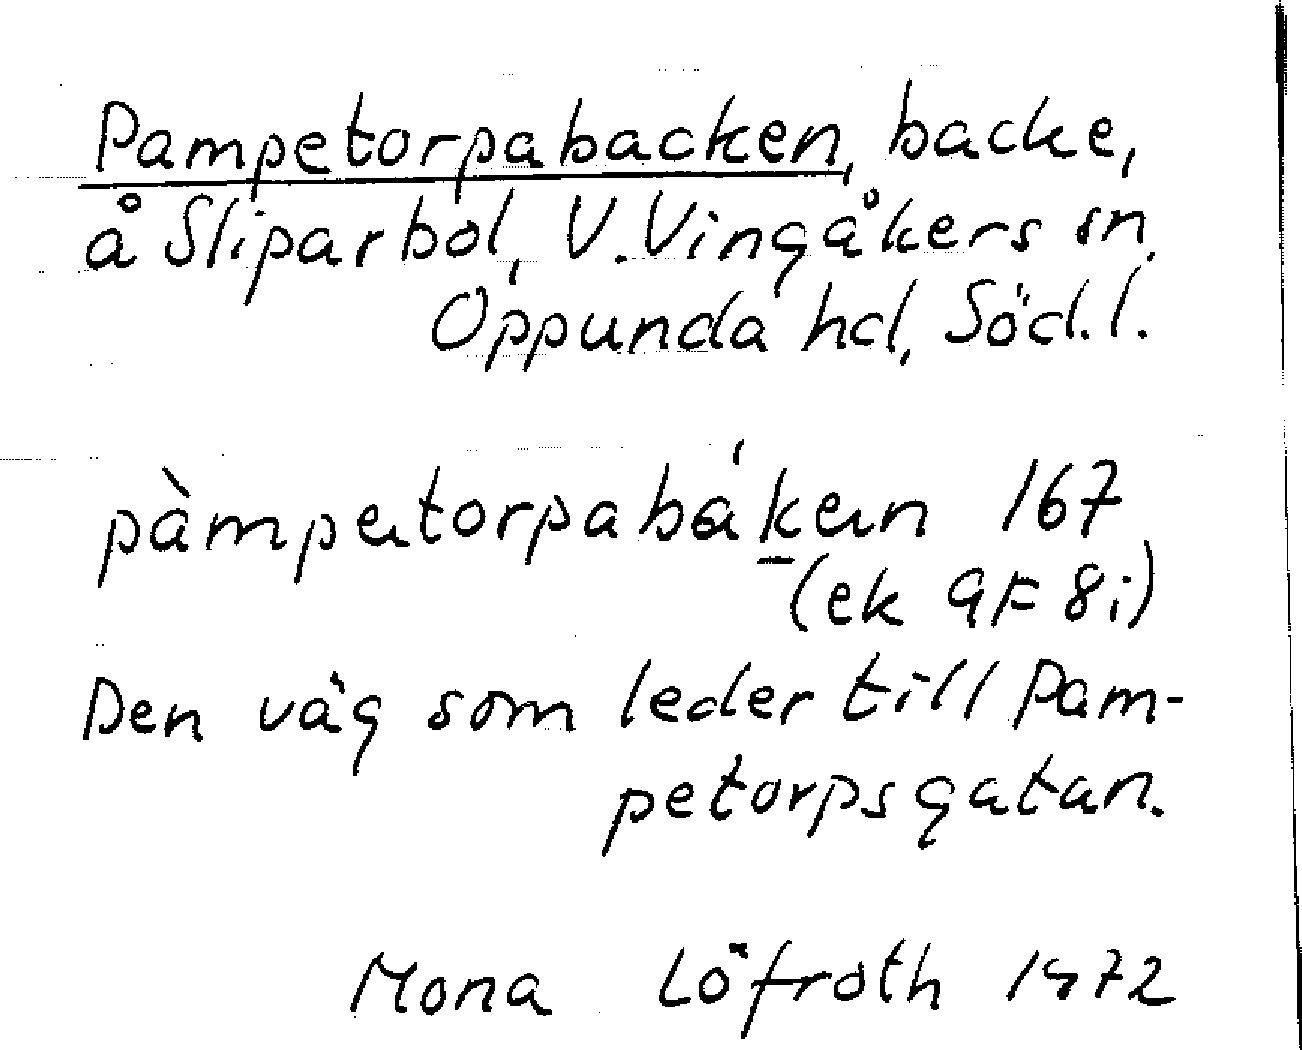 Pampetorpabacken, backe,
å Sliparbol, V. Vingåkers sn,
Oppunda hd, Söd.l.
pàmpetorpabáken 167
(ek 9F 8i)
Den väg som leder till Pam-
petorpsgatan.
Mona Löfroth 1972